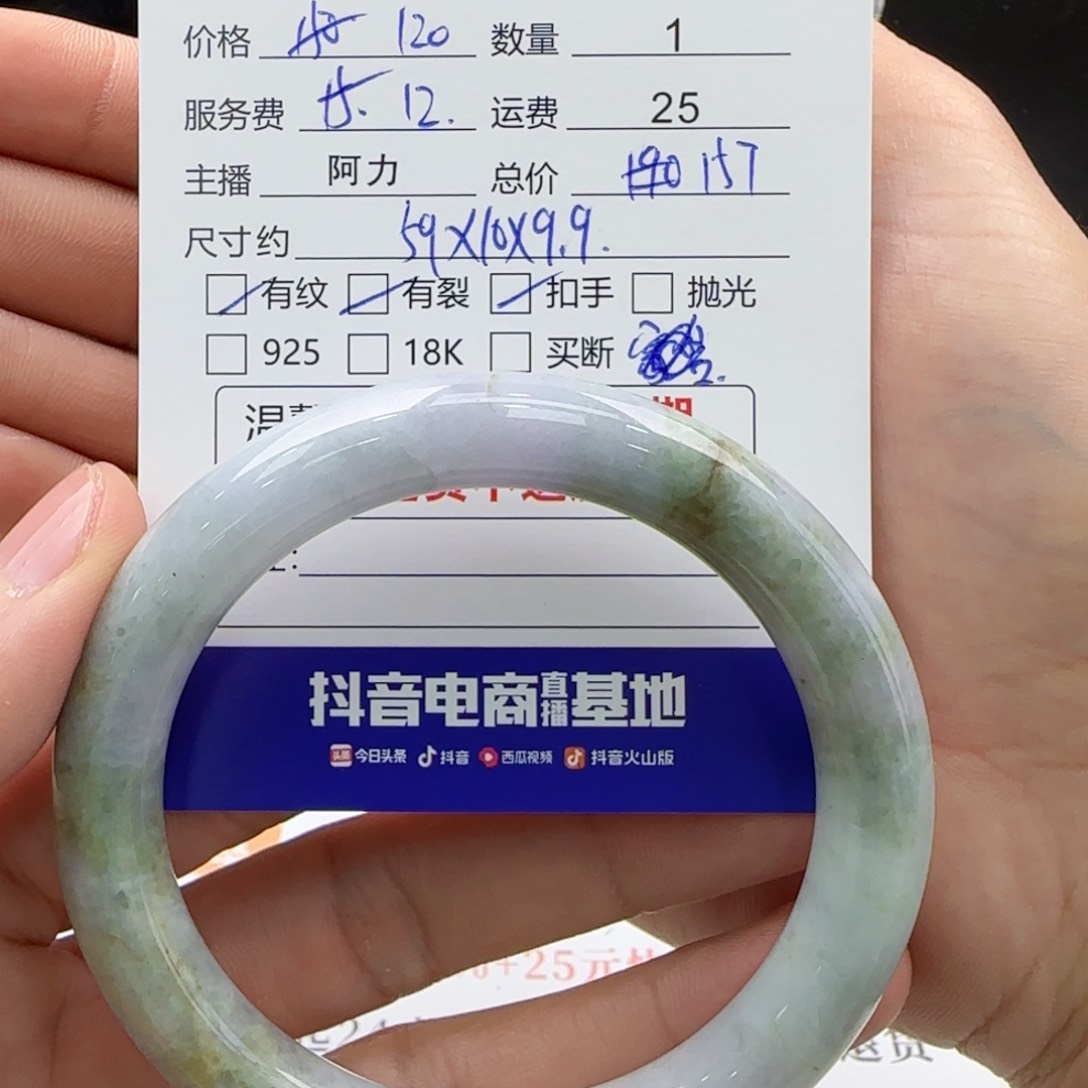 价格 120 数量 1
服务费 15. 12. 运费 25
主播 阿力 总价 190 157
尺寸约 59X10X9.9.
有纹 有裂 扣手 抛光
925 18K 买断
温
抖音电商直播基地
头条 今日头条 抖音 西瓜视频 抖音火山版
+25元